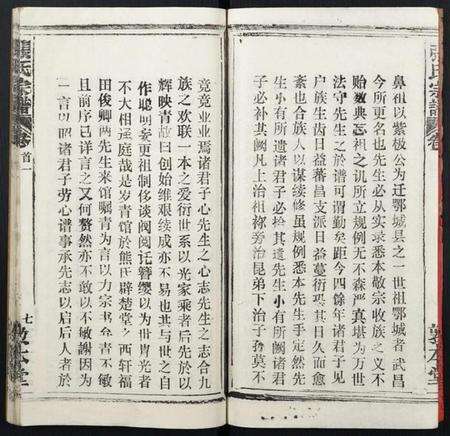 張氏宗譜
卷
鼻祖以紫极公为迁鄂城县之一世祖鄂城者武昌
今所更名也先生必从实录悉本敬宗收族之义不
贻数典忘祖之讥所立规例无不森严真堪为万世
法守先生之於谱可谓勤矣距今四馀年诸君子见
户族生齿日益蕃昌支派日益蔓衍恐其日久而愈
紊也合族人以谋续修虽规例悉本先生手定然先
生小有所遗诸君子必拾其遗先生小有所阙诸君
子必补其阙凡上治祖祢旁治昆弟下治子孙莫不
敦本堂
兢兢业业焉诸君子心先生之心志先生之志合九
族之欢联一本之爱衍世系以光家乘者后先於以
辉映青故曰创始维艰续成亦不易也其与世之自
作聪明妄更祖制侈谈阀阅讬簪缨以为世冑光者
不大相迳庭哉是岁青馆於熊氏辟楚堂之西轩福
田俊卿两先生来馆嘱青为言以为宗书弁青不敏
且前序已详言之又何赘然亦不敢以不敏谢因为
一言以昭诸君子劳心谱事承先志以启后人者於
張氏宗譜
卷首一
七
敦本堂